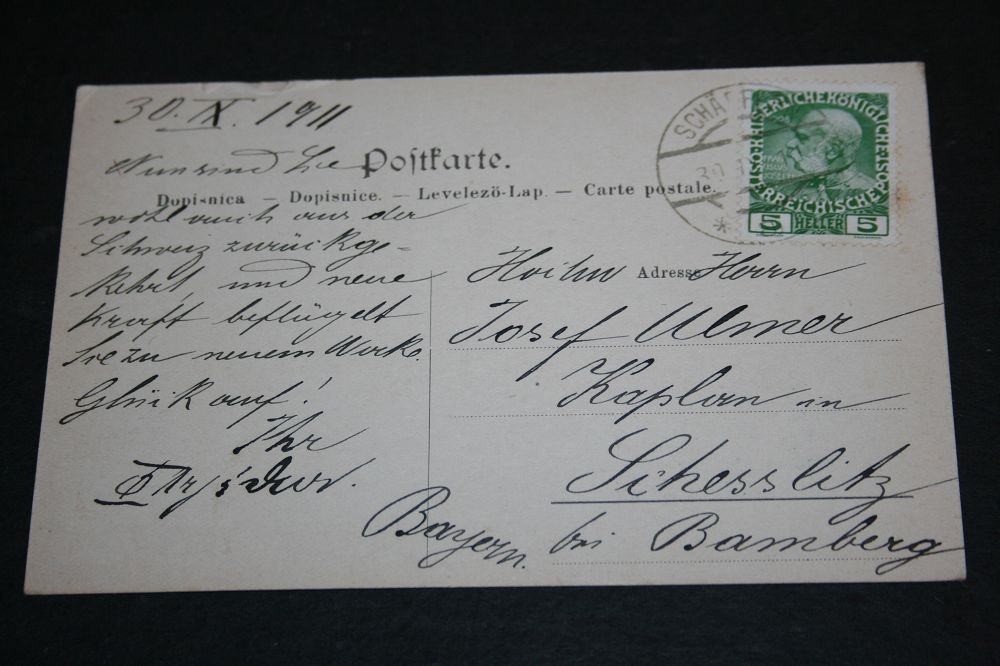 30. IX. 1911
Nun sind Sie
Postkarte.
Dopisnica — Dopisnice. — Levelező-Lap. — Carte postale.
wohl auch aus der
Schweiz zurückge-
kehrt, und neue
Kraft beflügelt
Sie zu neuem Werke.
Glück auf!
Ihr
SCHÄRD
30
KAISERLICHE KÖNIGLICHE
ÖSTERREICHISCHE POST
5 HELLER 5
Adresse
Hochw Herrn
Josef Ulmer
Kaplan in
Schesslitz
bei Bamberg
Bayern.